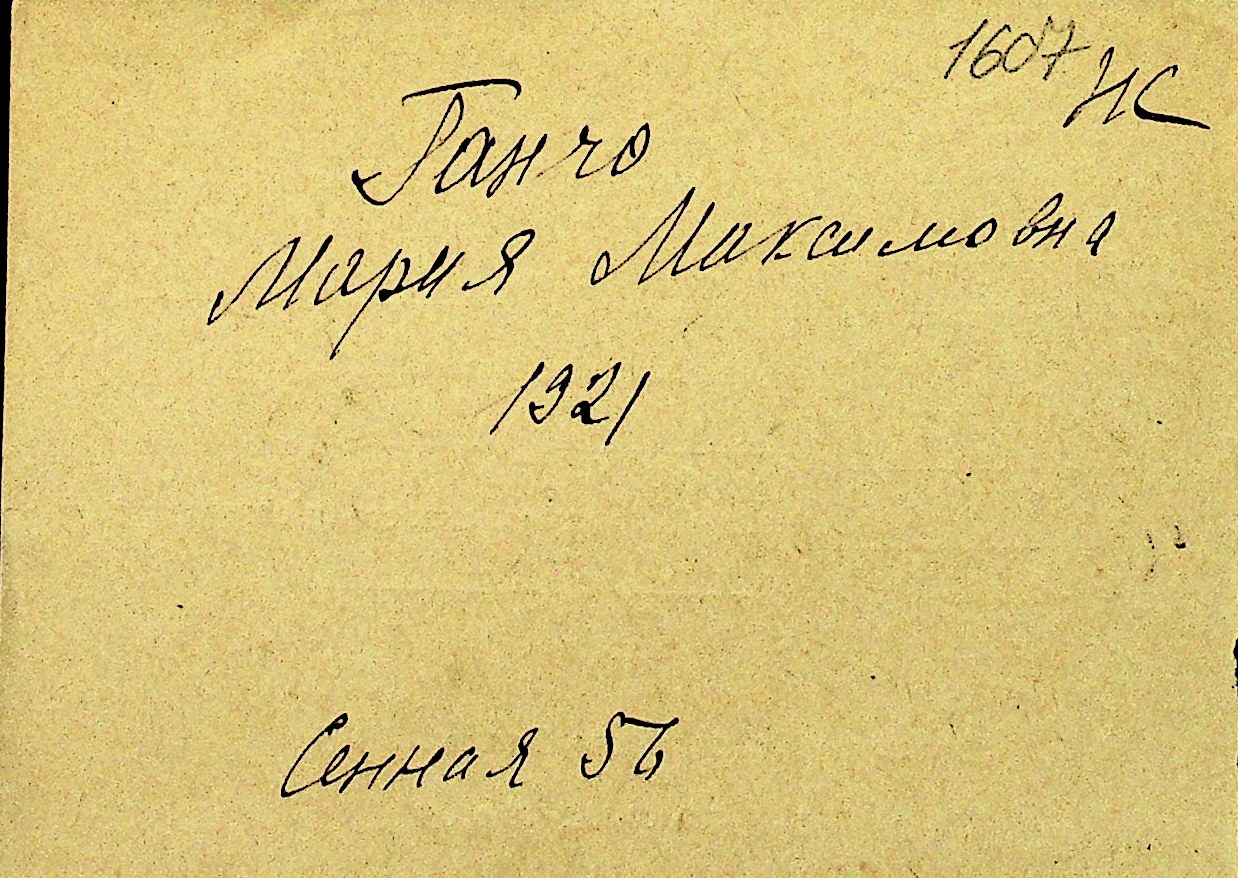 1607 НС
Ганчо
Мария Максимовна
1921
Сенная 56